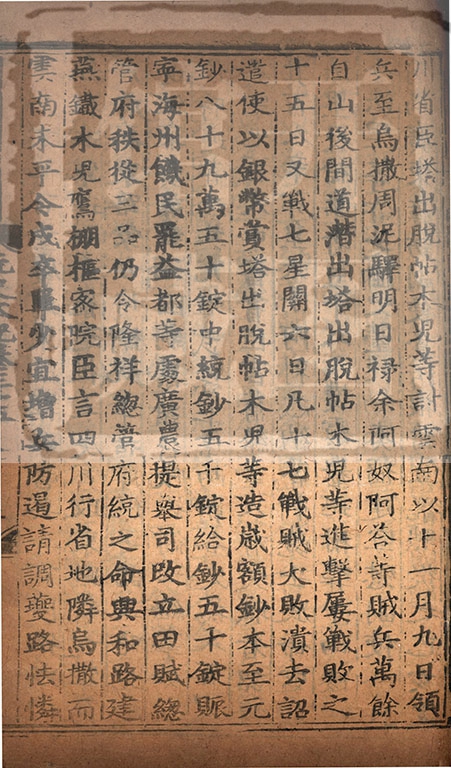 川省臣塔出脫帖木児等討雲南以十一月九日領
兵至烏撒周泥驛明日祿余阿奴阿荅等賊兵萬餘
自山後間道潛出塔出脫帖木児等進擊屢戰敗之
十五日又戰七星關六日凡十七戰賊大敗潰去詔
遣使以銀幣賞塔出脫帖木児等造歳額鈔本至元
鈔八十九萬五十錠中統鈔五千錠給鈔五千錠賑
寧海州饑民罷益都等處廣農提舉司改立田賦總
管府秩從三品仍令隆祥總管府統之命興和路建
燕鐵木児鷹棚樞宻院臣言四川行省地隣烏撒而
雲南未平今戍卒單少宜增兵防遏請調夔路怯憐